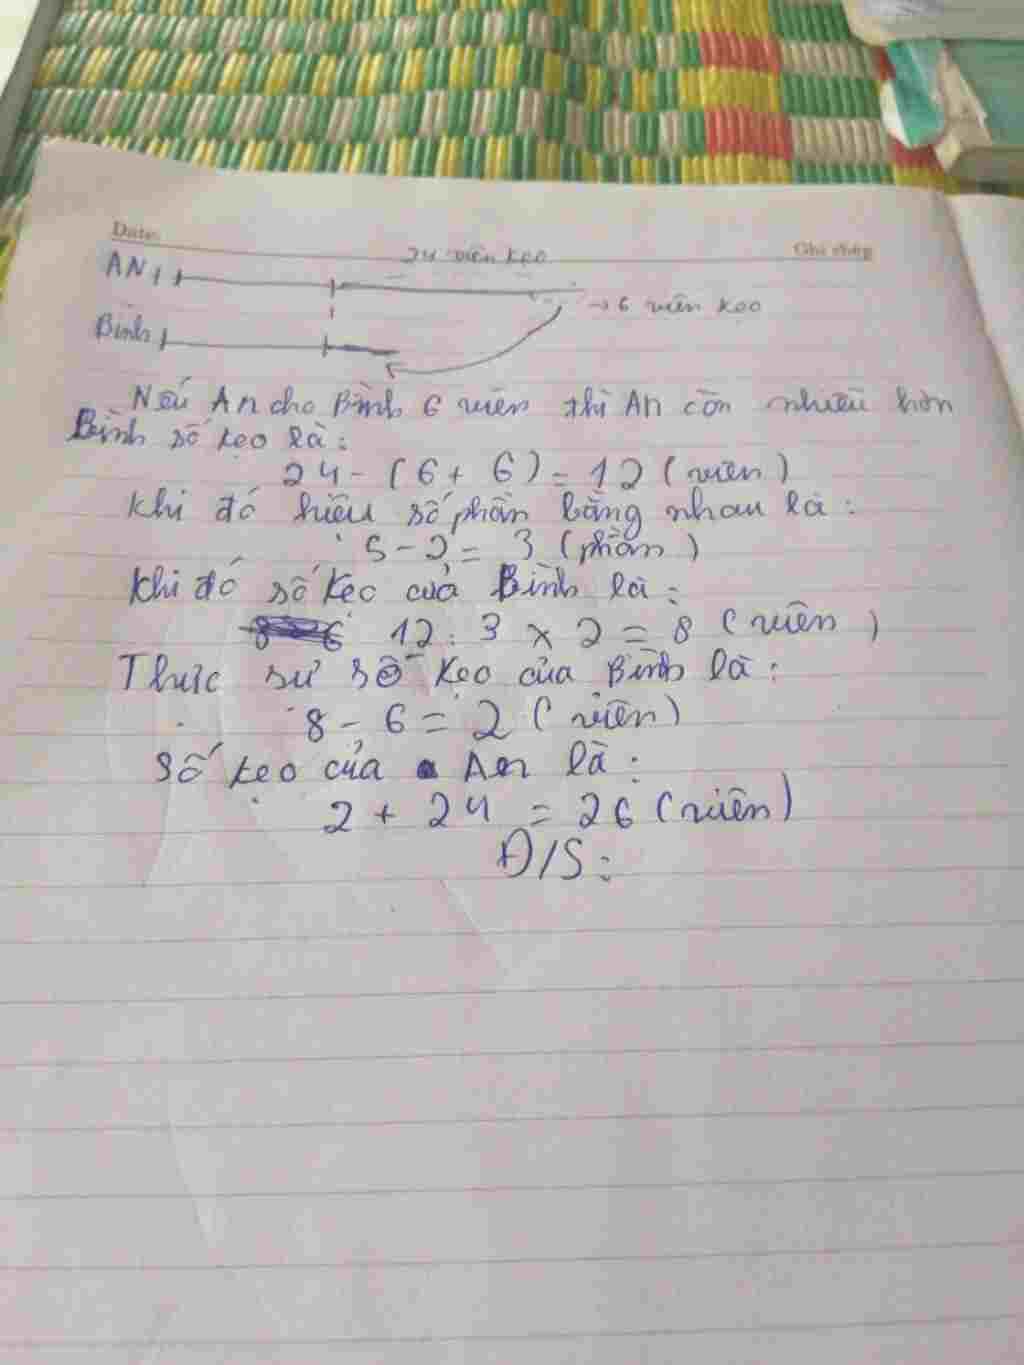 Date:
Ghi chúng
24 viên kẹo
AN
→ 6 viên kẹo
Bình
Nếu An cho Bình 6 viên thì An còn nhiều hơn
Bình số kẹo là:
24 - (6 + 6) = 12 (viên)
Khi đó hiệu số phần bằng nhau là:
5 - 2 = 3 (phần)
Khi đó số kẹo của Bình là:
12 : 3 x 2 = 8 (viên)
Thực sự số kẹo của Bình là:
8 - 6 = 2 (viên)
Số kẹo của An là:
2 + 24 = 26 (viên)
Đ/S: